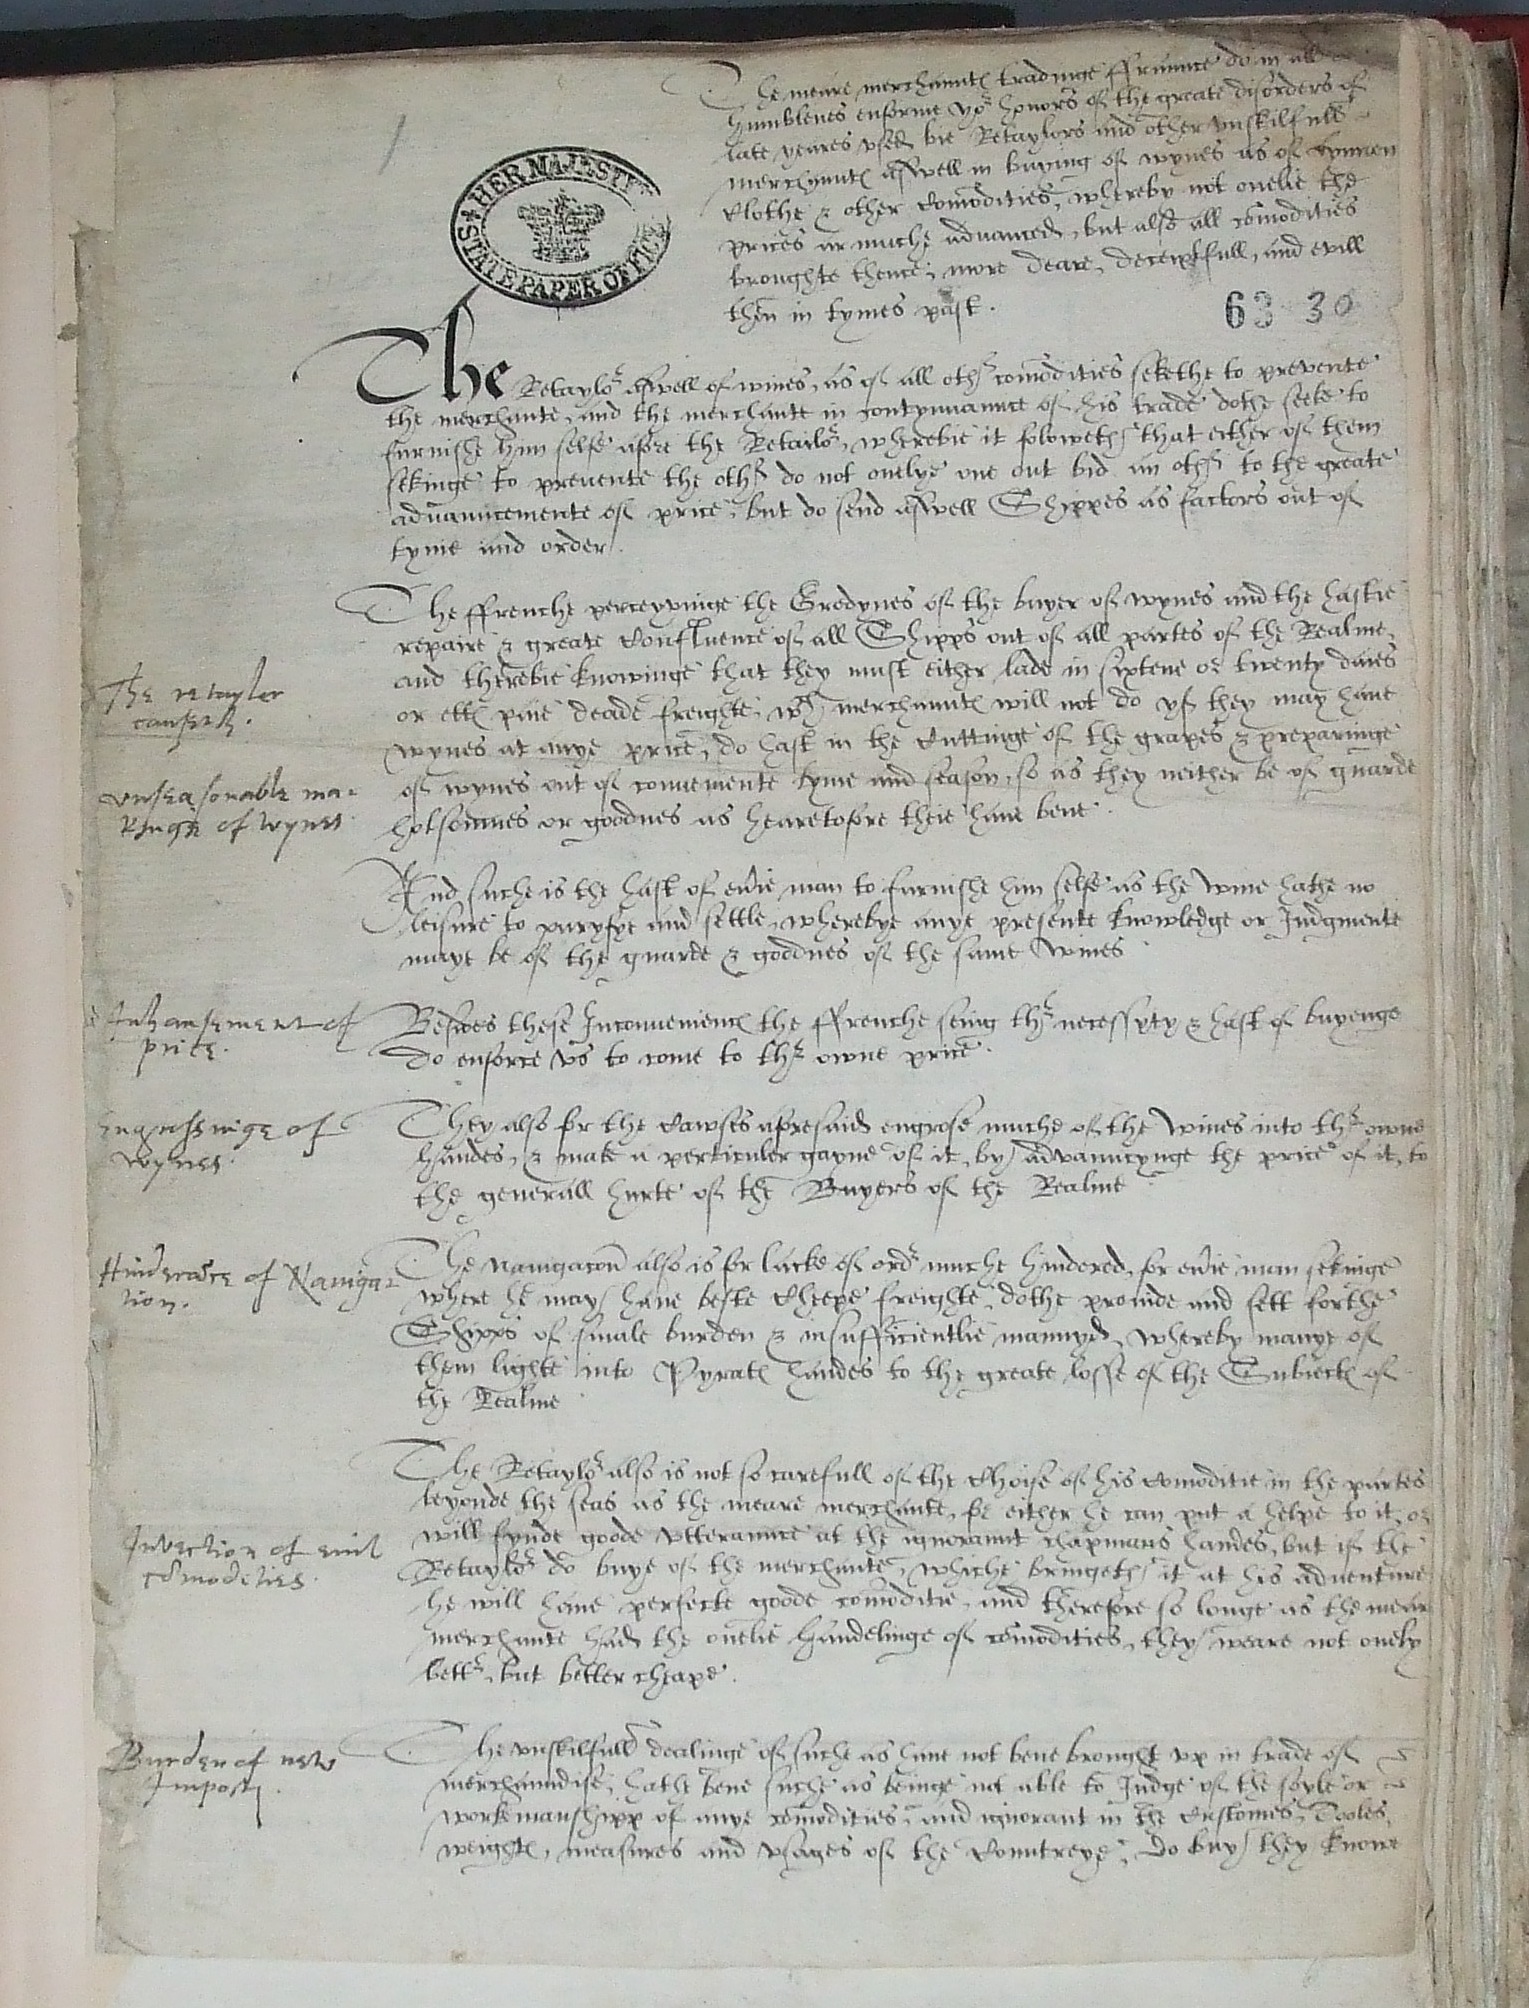 The meare merchauntes tradinge ffraunce do in all
humblenes enforme yor honors of the greate disorders of
late yeares vsed bie Retaylors and other vnskilfull
merchauntes aswell in buying of wynes as of lynnen
clothe & other comodities, whereby not onelie the
prices ar muche advanced, but also all comodities
broughte thence, more deare, deceiptfull, and evill
then in tymes past.
1
HER MAJESTY'S STATE PAPER OFFICE
63 30
The Retaylor aswell of wines, as of all other comodities sekethe to prevente
the merchante, and the merchante in contynuaunce of his trade dothe seeke to
furnishe him selfe afore the Retailor, wherebie it foloweth that either of them
sekinge to prevente the other do not onelye one out bid an other to the greate
advauncemente of price, but do send aswell Shippes as factors out of
tyme and order.
The ffrenche perceyvinge the Gredynes of the buyer of wynes and the hastie
repaire & greate Confluence of all Shipps out of all partes of the Realme,
and therebie knowinge that they must either lade in sixtene or twenty daies
or ells paie deade freighte, wch merchauntes will not do yf they may have
wynes at anye price, do hast in the Cuttinge of the grapes & preparinge
of wynes out of conveniente tyme and season, so as they neither be of guarde
holsomnes or goodnes as hearetofore theie have bene.
The retayler
causeth.
vnseasonable ma-
kynge of wynes
And suche is the hast of everie man to furnishe him selfe as the wine hathe no
leisure to puryfye and settle, wherebye anye presente knowledge or Judgmente
maye be of the guarde & goodnes of the same wines
Inhansement of
price.
Besides these Inconveniences the ffrenche seing their necessyty & hast of buyenge
do enforce vs to come to their owne price.
engrossinge of
wynes.
They also for the Cawses aforesaid engrose muche of the Wines into their owne
handes, & make a perticuler gayne of it, by advauncynge the price of it, to
the generall hurte of the Buyers of the Realme
Hinderance of Naviga-
tion.
The navigacon also is for lacke of order muche hindered, for everie man sekinge
where he may have beste cheepe freighte, dothe provide and sett forthe
Shipps of smale burden & insufficientlie mannyd, whereby manye of
them lighte into Pyrates handes to the greate losse of the Subiectes of
the Realme
Invection of evil
comodities.
The Retaylor also is not so carefull of the Choise of his Comoditie in the partes
beyonde the seas as the meare merchante, for either he can put a helpe to it, or
will fynde goode vtteraunce at the ignoraunt chapmans handes, but if the
Retaylor do buye of the merchante, whiche bringeth it at his adventure
he will have perfecte goode comoditie, and therefore so longe as the mear
merchante had the onelie handelinge of comodities, they weare not onely
bettr, but better cheape.
Burden of new
Impostes.
The vnskilfull dealinge of suche as have not bene brought vp in trade of
merchaundise, hathe bene suche as beinge not able to Judge of the soyle or
workmanshipp of anye comodities, and ignorant in the Customes, Tooles,
weightes, measures and vsages of the Countreye, do buy they knowe